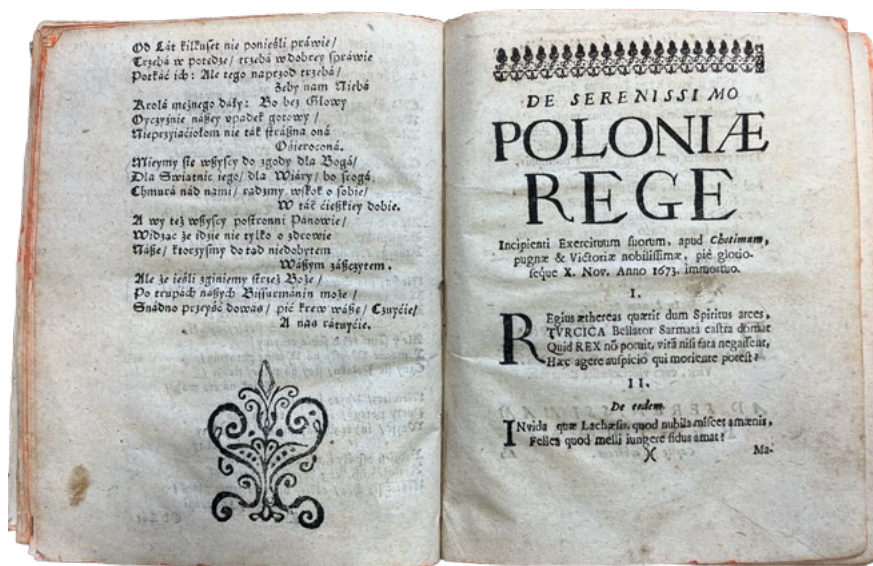 Od Lat kilkuset nie ponieśli práwie/
Trzebá w potedze/ trzebá w dobrey spráwie
Potkáć ich: Ale tego naprzod trzebá/
Zeby nam Niebá
Krolá mężnego dáły: Bo bez Głowy
Oyczyznie nászey vpadek gotowy/
Nieprzyiaciołom nie ták strászna oná
Osieroconá.
Mieymy się wszyscy do zgody dla Bogá/
Dla Swiatnic iego/ dla Wiáry/ bo srogá
Chmurá nád nami/ radzmy wskok o sobie/
W ták ćięszkiey dobie.
A wy też wszyscy postronni Pánowie/
Widząc że idzie nie tylko o zdrowie
Násze/ ktorzysmy do tąd niedobytem
Wászym zászczytem.
Ale że iesli zginiemy strzeż Boże/
Po trupách nászych Bissurmánin może/
Snádno przeyść do was/ pić krew wásze/ Czuyćie/
A nas rátuyćie.
DE SERENISSIMO
POLONIÆ
REGE
Incipienti Exercituum suorum, apud Chotimum,
pugnæ & Victoriæ nobilissimæ, piè glorio-
seque X. Nov. Anno 1673. immortuo.
I.
REgius æthereas quærit dum Spiritus arces,
TVRCICA Bellator Sarmata castra domat
Quid REX nō potuit, vitâ nisi fata negassent,
Hæc agere auspicio qui moriente potest?
II.
De eodem.
INvida quæ Lachæsis, quod nubila miscet amænis,
Fellea quod melli iungere sidus amat?
)(
Ma-